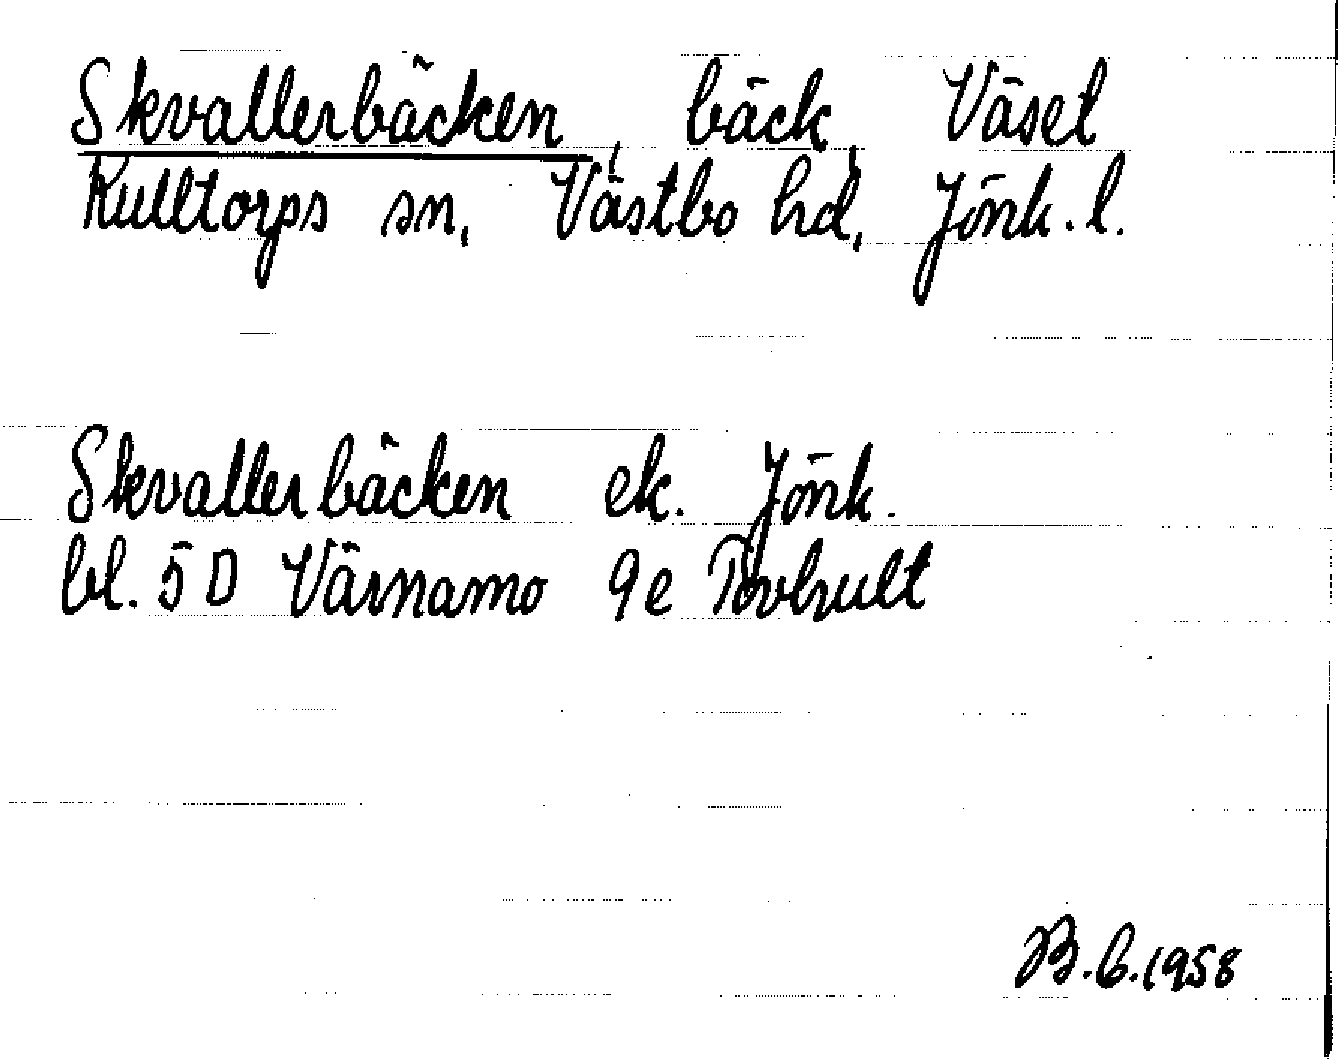 Skvallerbäcken, bäck, Väsel
Kulltorps sn, Västbo hd, Jönk.l.
Skvallerbäcken ek. Jönk.
bl. 5 D Värnamo 9e
1958